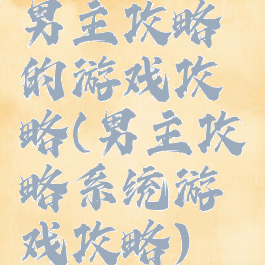 男主攻略
的游戏攻
略(男主攻
略系统游
戏攻略)